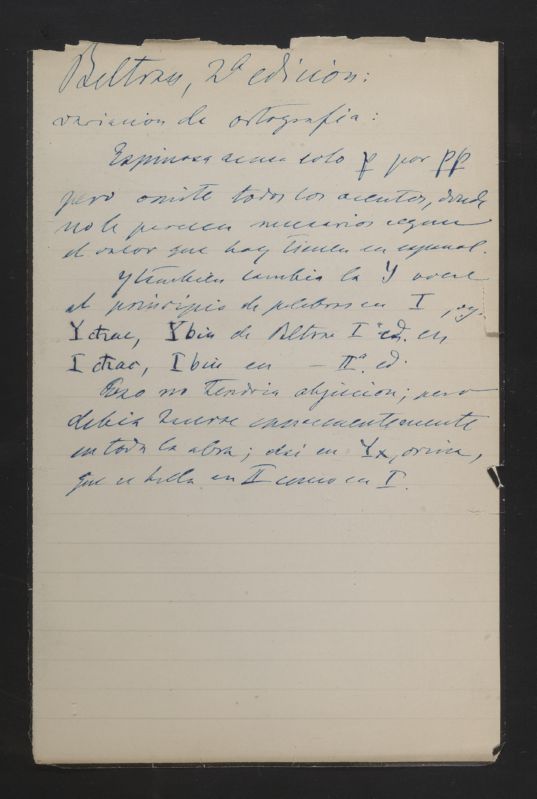 Beltran, 2ª edicion:
variacion de ortografia:
Espinosa solo p por pp
pero omite todos los acentos, donde
no le parecen necesarios segun
el valor que hoy tienen en español.
Y tambien cambia la Y
al principio de plabras en I, eg.
Ychac, Ybin de Beltran Iª ed. en
Ichac, Ibin en — IIª. ed.
Eso no tendria objecion; pero
debia hacerse consecuentemente
en toda la obra; asi en Yx, orina,
que se halla en II como en I.